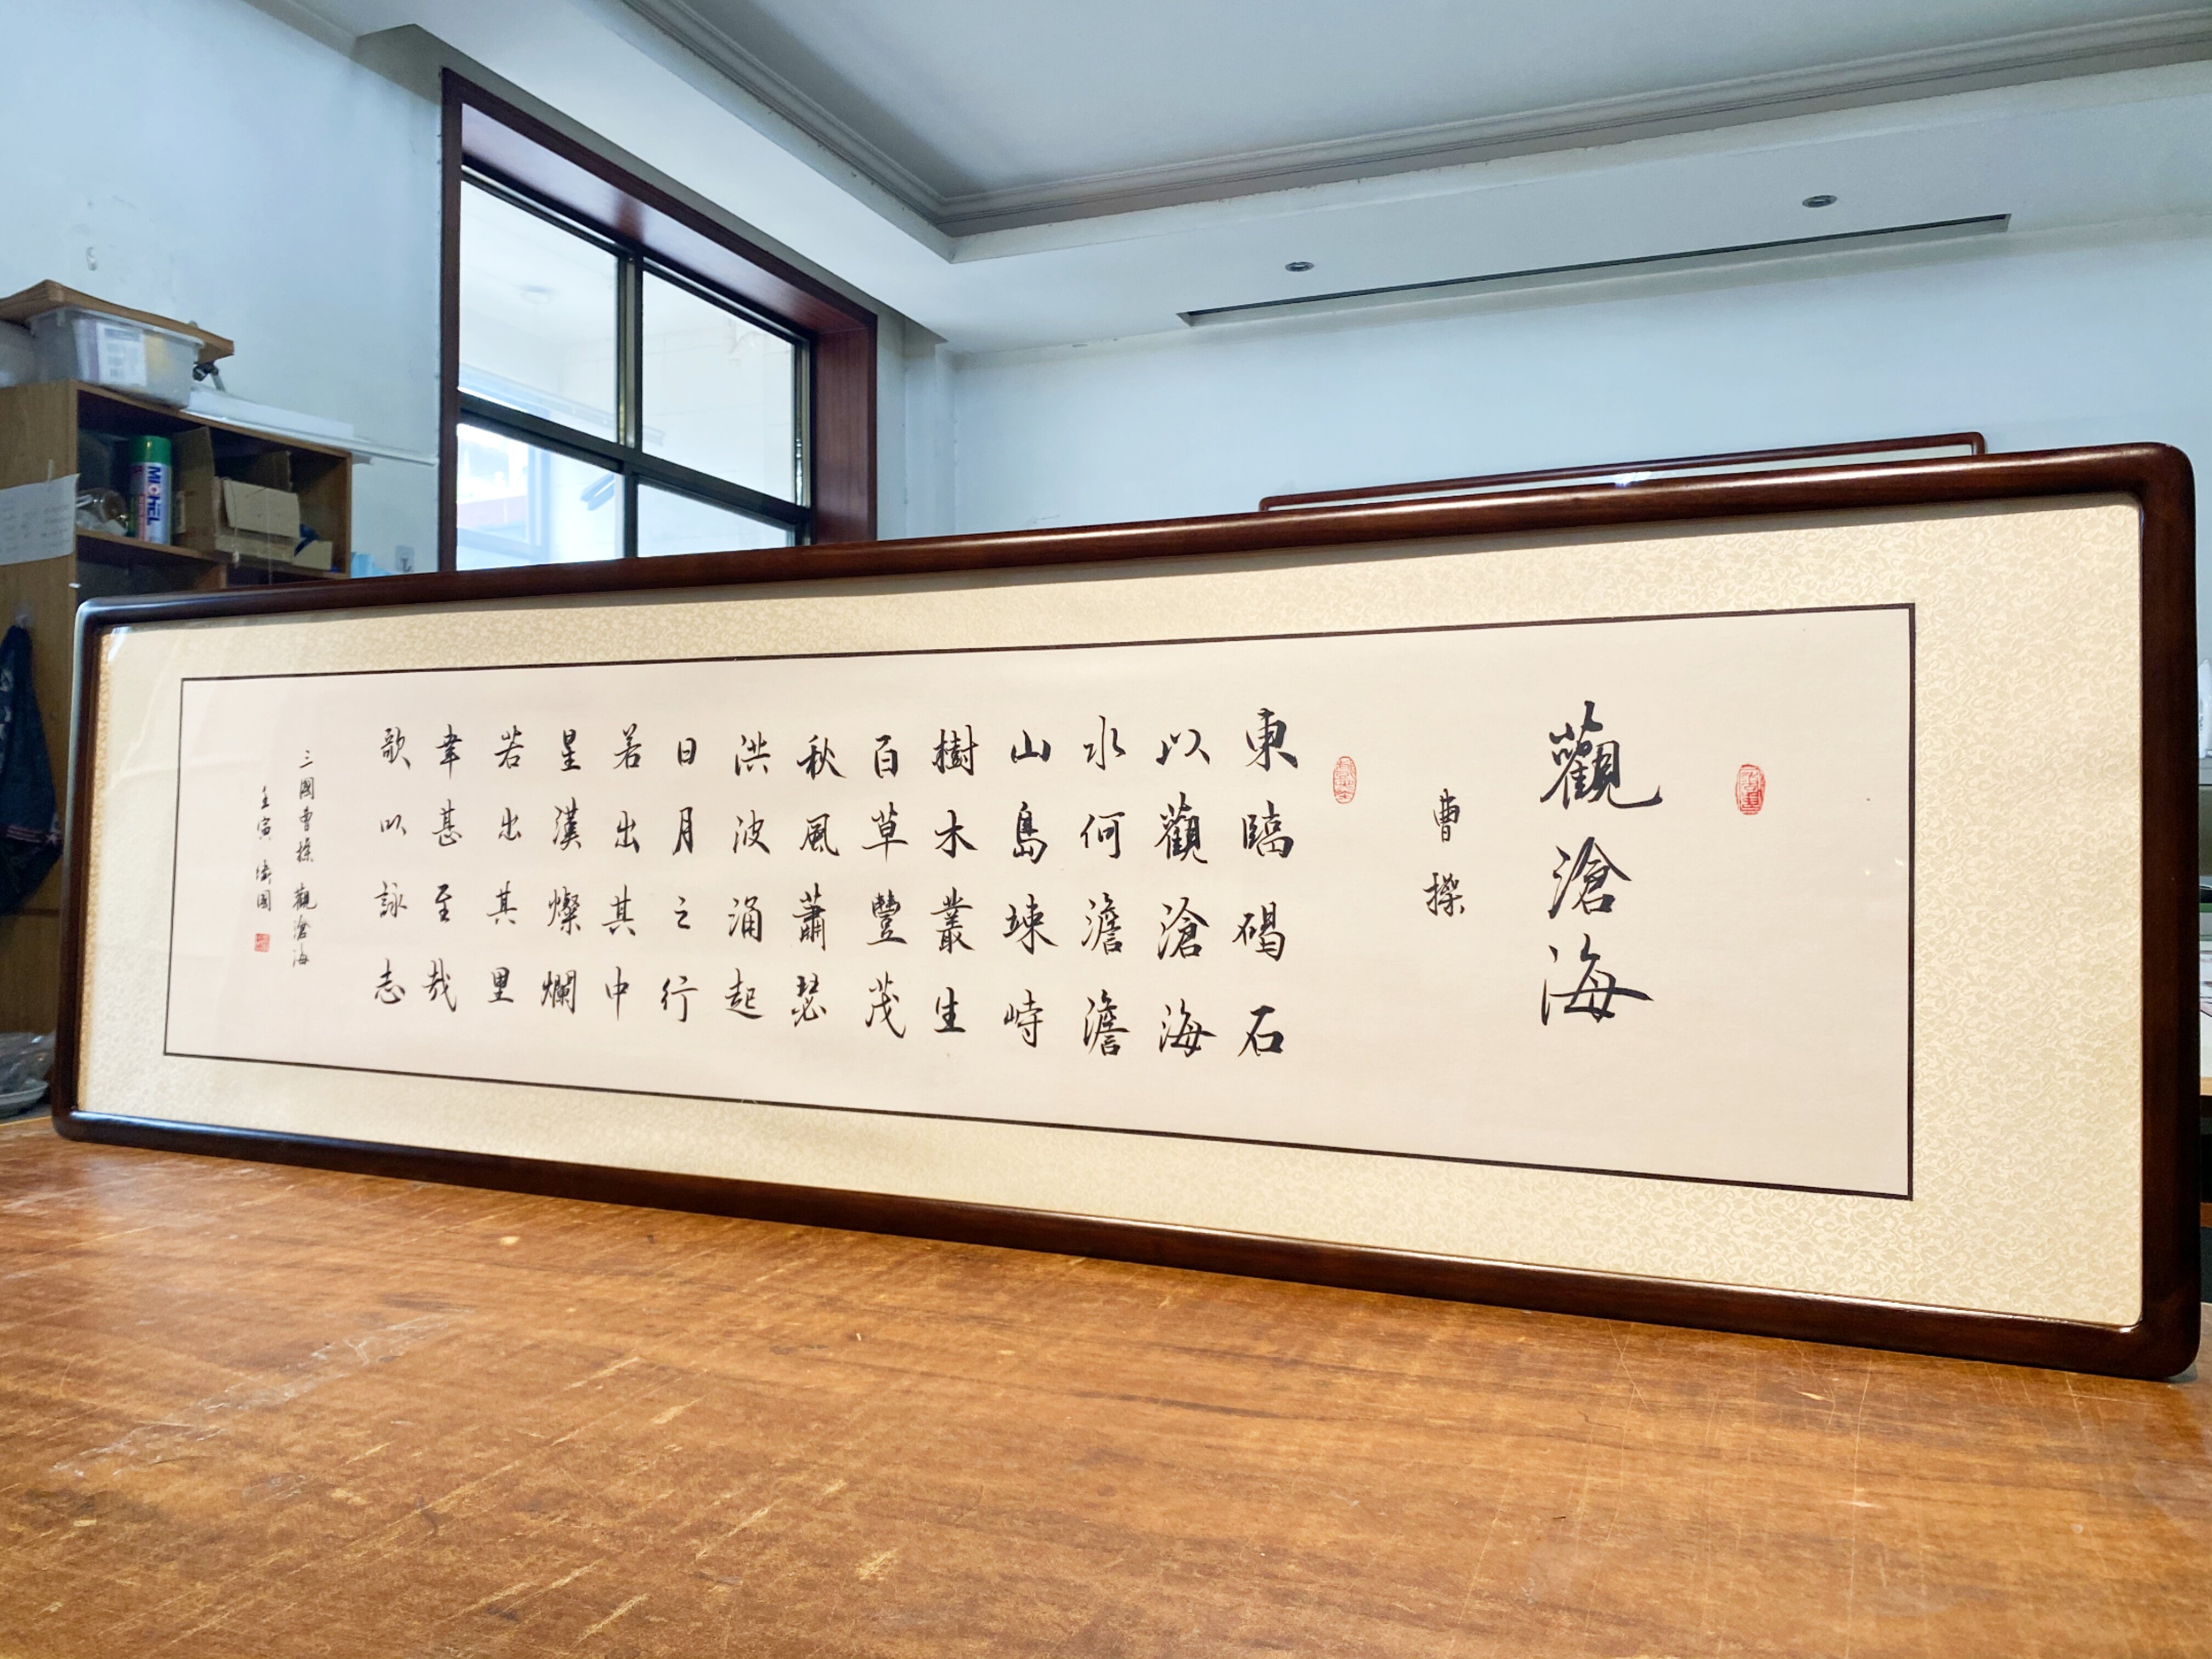 觀滄海
曹操
東臨碣石
以觀滄海
水何澹澹
山島竦峙
樹木叢生
百草豐茂
秋風蕭瑟
洪波涌起
日月之行
若出其中
星漢燦爛
若出其里
幸甚至哉
歌以詠志
三國曹操 觀滄海
壬寅 國